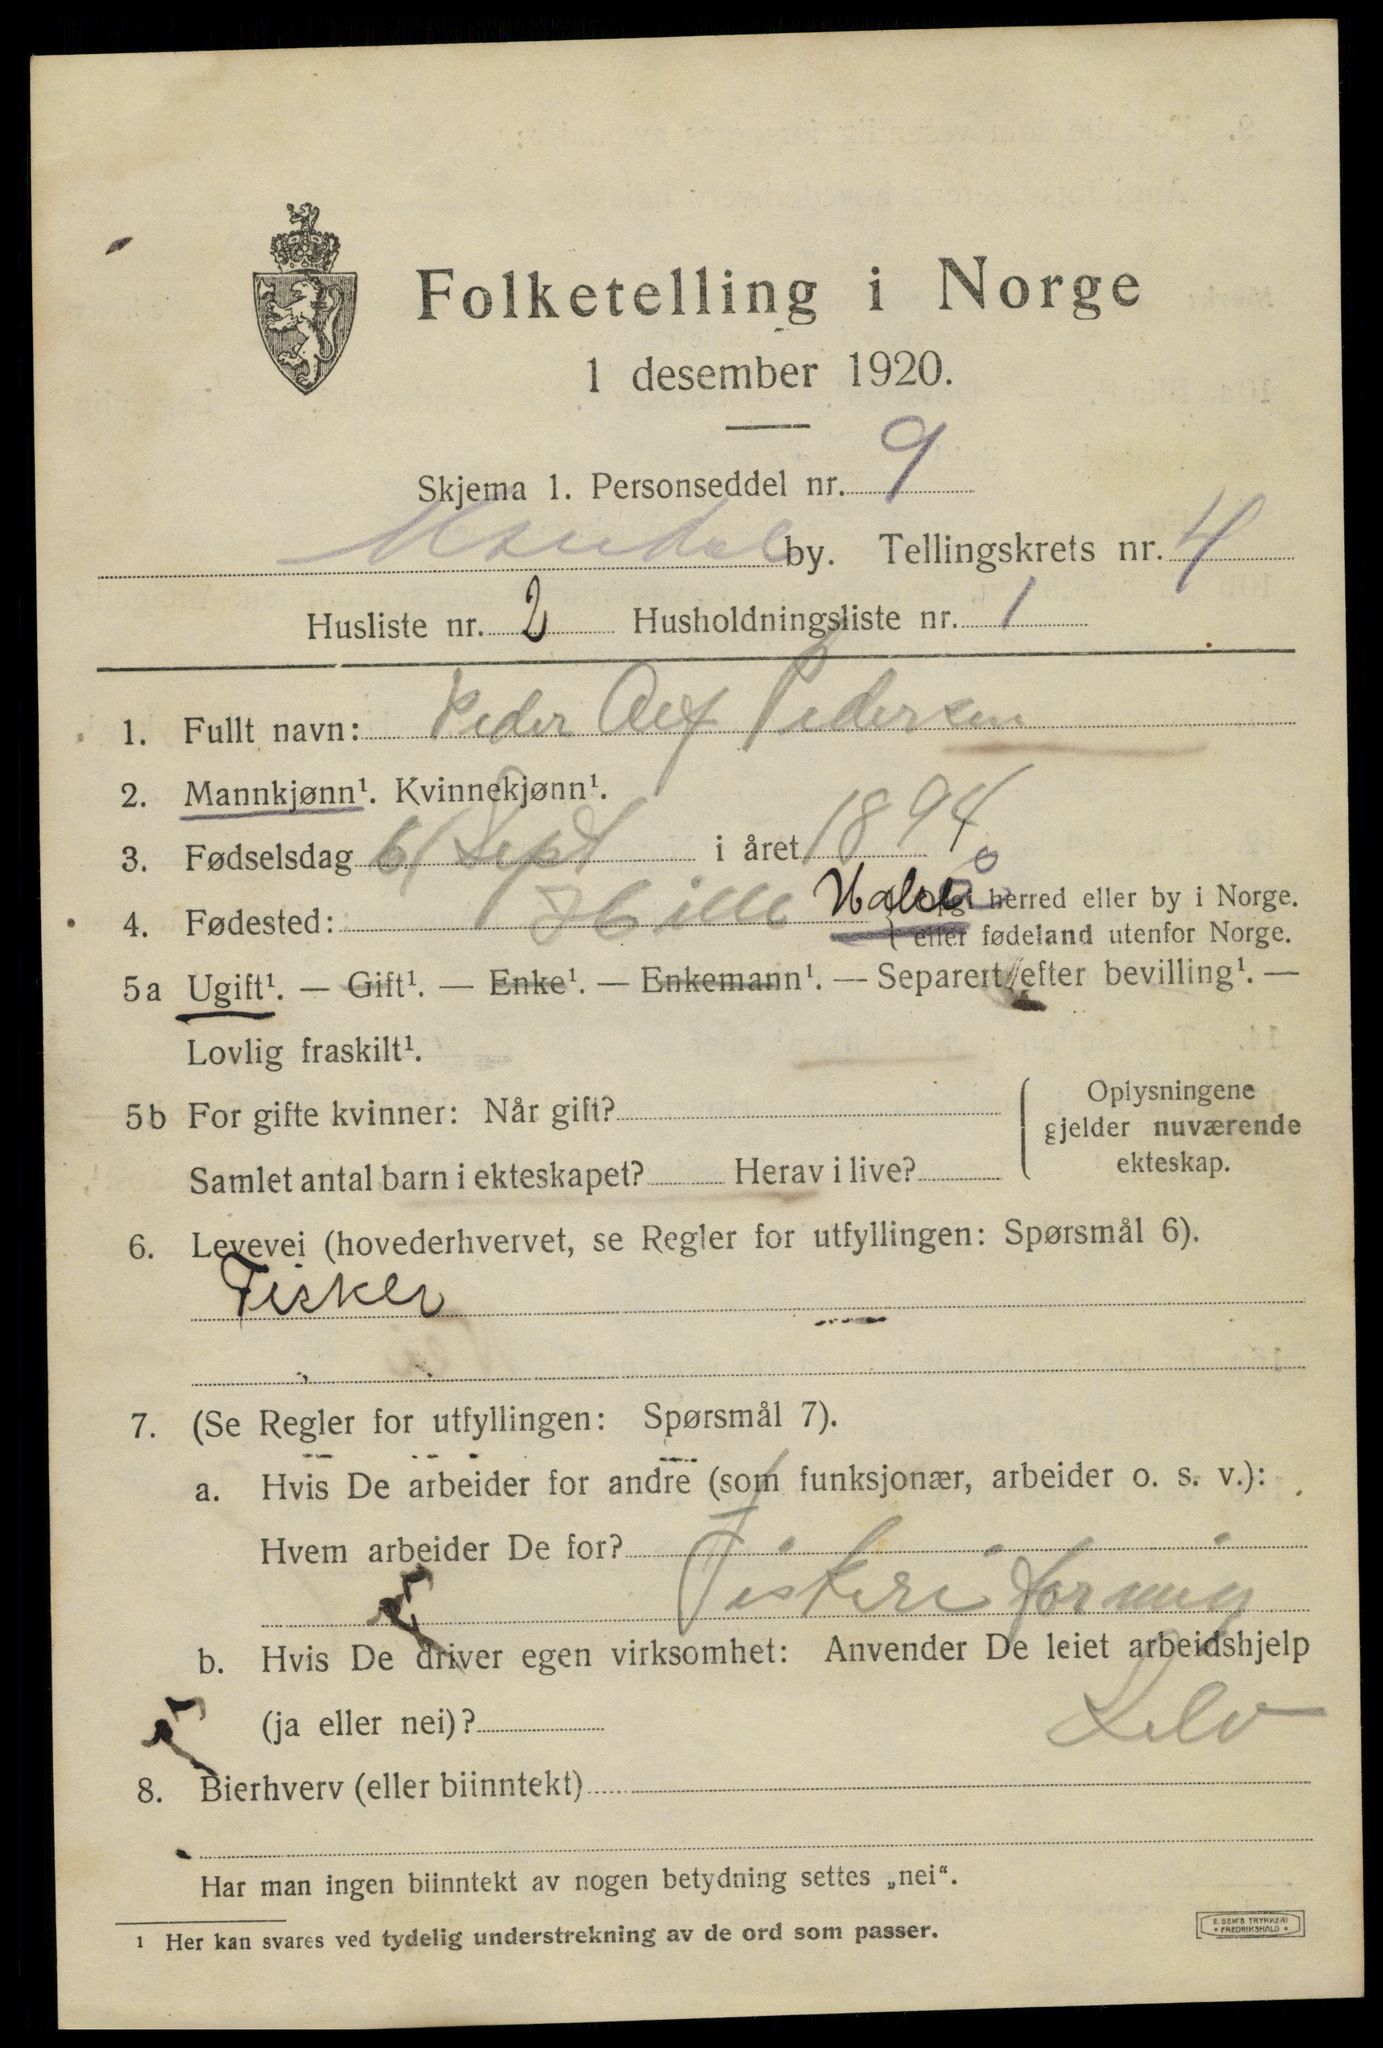 Folketelling i Norge
1 desember 1920.
Skjema 1. Personseddel nr. 9
Mandal by. Tellingskrets nr. 4
Husliste nr. 2 Husholdningsliste nr. 1
1. Fullt navn: Peder Alf Pedersen
2. Mannkjønn¹. Kvinnekjønn¹.
3. Fødselsdag 6/ Sept i året 1894
4. Fødested: Hille Halså herred eller by i Norge.
eller fødeland utenfor Norge.
5a Ugift¹. — Gift¹. — Enke¹. — Enkemann¹. — Separert efter bevilling¹. —
Lovlig fraskilt¹.
5b For gifte kvinner: Når gift?
Samlet antal barn i ekteskapet? Herav i live?
Oplysningene
gjelder nuværende
ekteskap.
6. Levevei (hovederhvervet, se Regler for utfyllingen: Spørsmål 6).
Fisker
7. (Se Regler for utfyllingen: Spørsmål 7).
a. Hvis De arbeider for andre (som funksjonær, arbeider o. s. v.):
Hvem arbeider De for?
Fiskeri for mig
b. Hvis De driver egen virksomhet: Anvender De leiet arbeidshjelp
(ja eller nei)? Selv
8. Bierhverv (eller biinntekt)
Har man ingen biinntekt av nogen betydning settes „nei“.
1 Her kan svares ved tydelig understrekning av de ord som passer.
E. SEM'S TRYKKERI
* FREDRIKSHALD *